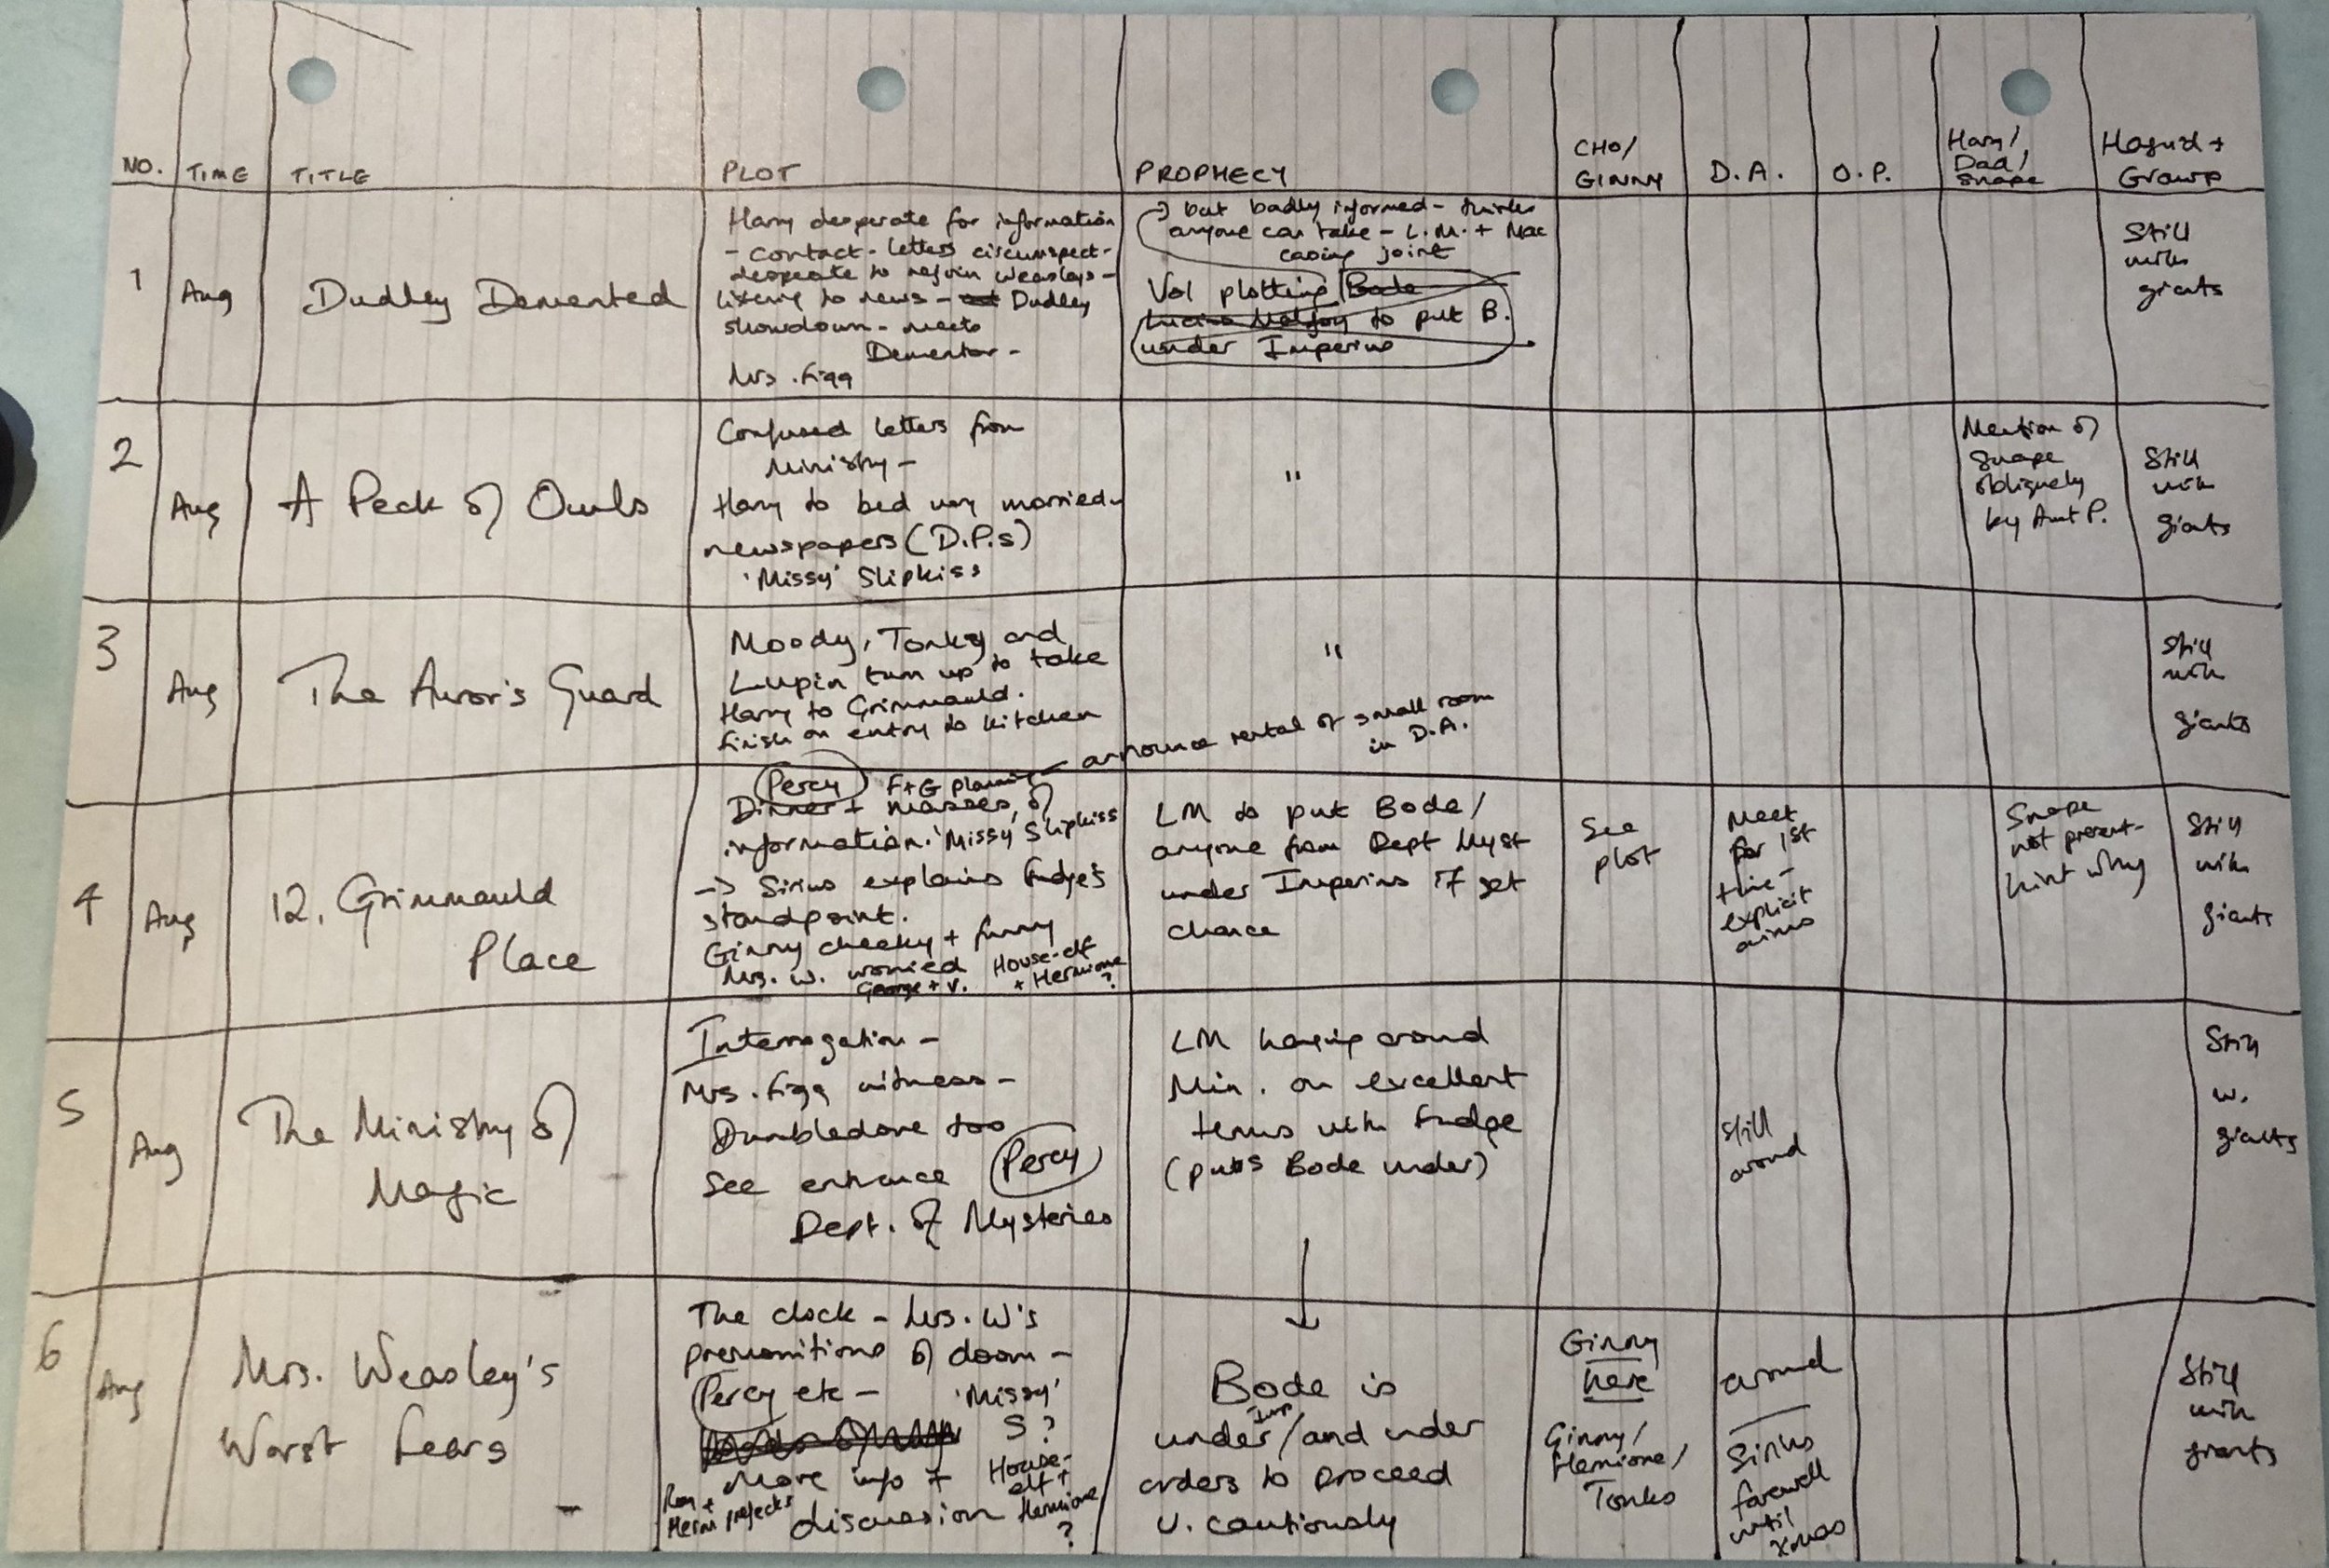 NO.
TIME
TITLE
PLOT
PROPHECY
CHO/
GINNY
D.A.
O.P.
Harry/
Dad/
Snape
Hagrid +
Grawp
1
Aug
Dudley Demented
Harry desperate for information
- contact - letters circumspect -
desperate to rejoin Weasleys -
listening to news - Dudley
showdown - meets
Dementor -
Mrs. Figg
→ but badly informed - thinks
anyone can take - L.M. + Mac
casing joint
Vol plotting Bode
Lucius Malfoy to put B.
under Imperius
Still
with
giants
2
Aug
A Peck of Owls
Confused letters from
Ministry -
Harry to bed very worried -
newspapers (D.P.s)
'Missy' Slipkiss
"
Mention of
Snape
obliquely
by Aunt P.
Still
with
giants
3
Aug
The Auror's Guard
Moody, Tonks and
Lupin turn up to take
Harry to Grimmauld.
finish on entry to kitchen
"
Still
with
giants
4
Aug
12, Grimmauld
Place
Percy F+G planning - announce rental of small room
in D.A.
Dinner + masses of
information. 'Missy' Slipkiss
-> Sirius explains Fudge's
standpoint.
Ginny cheeky + funny
Mrs. W. worried House-elf
George + V. + Hermione
?
LM to put Bode/
anyone from Dept Myst
under Imperius if get
chance
See
plot
Meet
for 1st
time -
explicit
aims
Snape
not present -
hint why
Still
with
giants
5
Aug
The Ministry of
Magic
Interrogation -
Mrs. Figg witness -
Dumbledore too
See entrance Percy
Dept. of Mysteries
LM hanging around
Min. on excellent
terms with Fudge
(puts Bode under)
↓
still
around
Still
w.
giants
6
Aug
Mrs. Weasley's
Worst Fears
The clock - Mrs. W's
premonitions of doom -
Percy etc - 'Missy'
S?
More info + House-
elf +
Ron +
Herm prefects discussion Hermione
?
Bode is
under Imp/and under
orders to proceed
V. cautiously
Ginny
here
Ginny/
Hermione/
Tonks
around
Sirius
farewell
until
Xmas
Still
with
giants